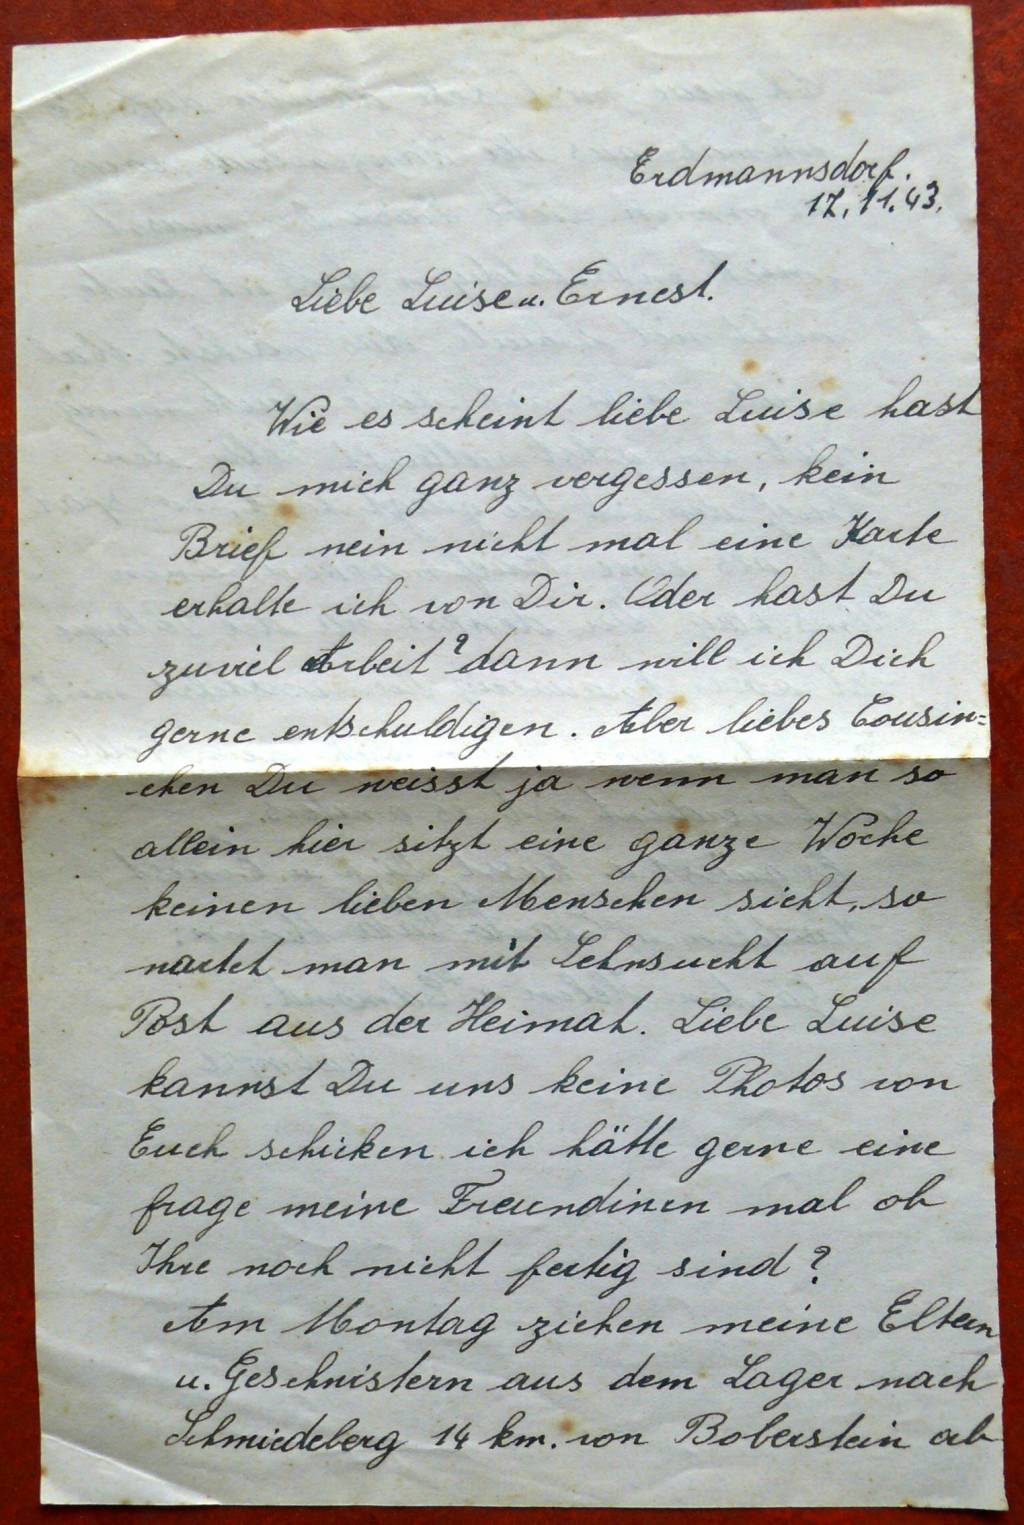 Erdmannsdorf.
17.11.43.
Liebe Luise u. Ernest.
Wie es scheint liebe Luise hast
Du mich ganz vergessen, kein
Brief nein nicht mal eine Karte
erhalte ich von Dir. Oder hast Du
zuviel Arbeit? dann will ich Dich
gerne entschuldigen. Aber liebes Cousin=
chen Du weisst ja wenn man so
allein hier sitzt eine ganze Woche
keinen lieben Menschen sieht, so
wartet man mit Sehnsucht auf
Post aus der Heimat. Liebe Luise
kannst Du uns keine Photos von
Euch schicken ich hätte gerne eine
frage meine Freundinen mal ob
Ihre noch nicht fertig sind?
Am Montag ziehen meine Eltern
u. Geschwistern aus dem Lager nach
Schmiedeberg 14 km. von Boberstein ab